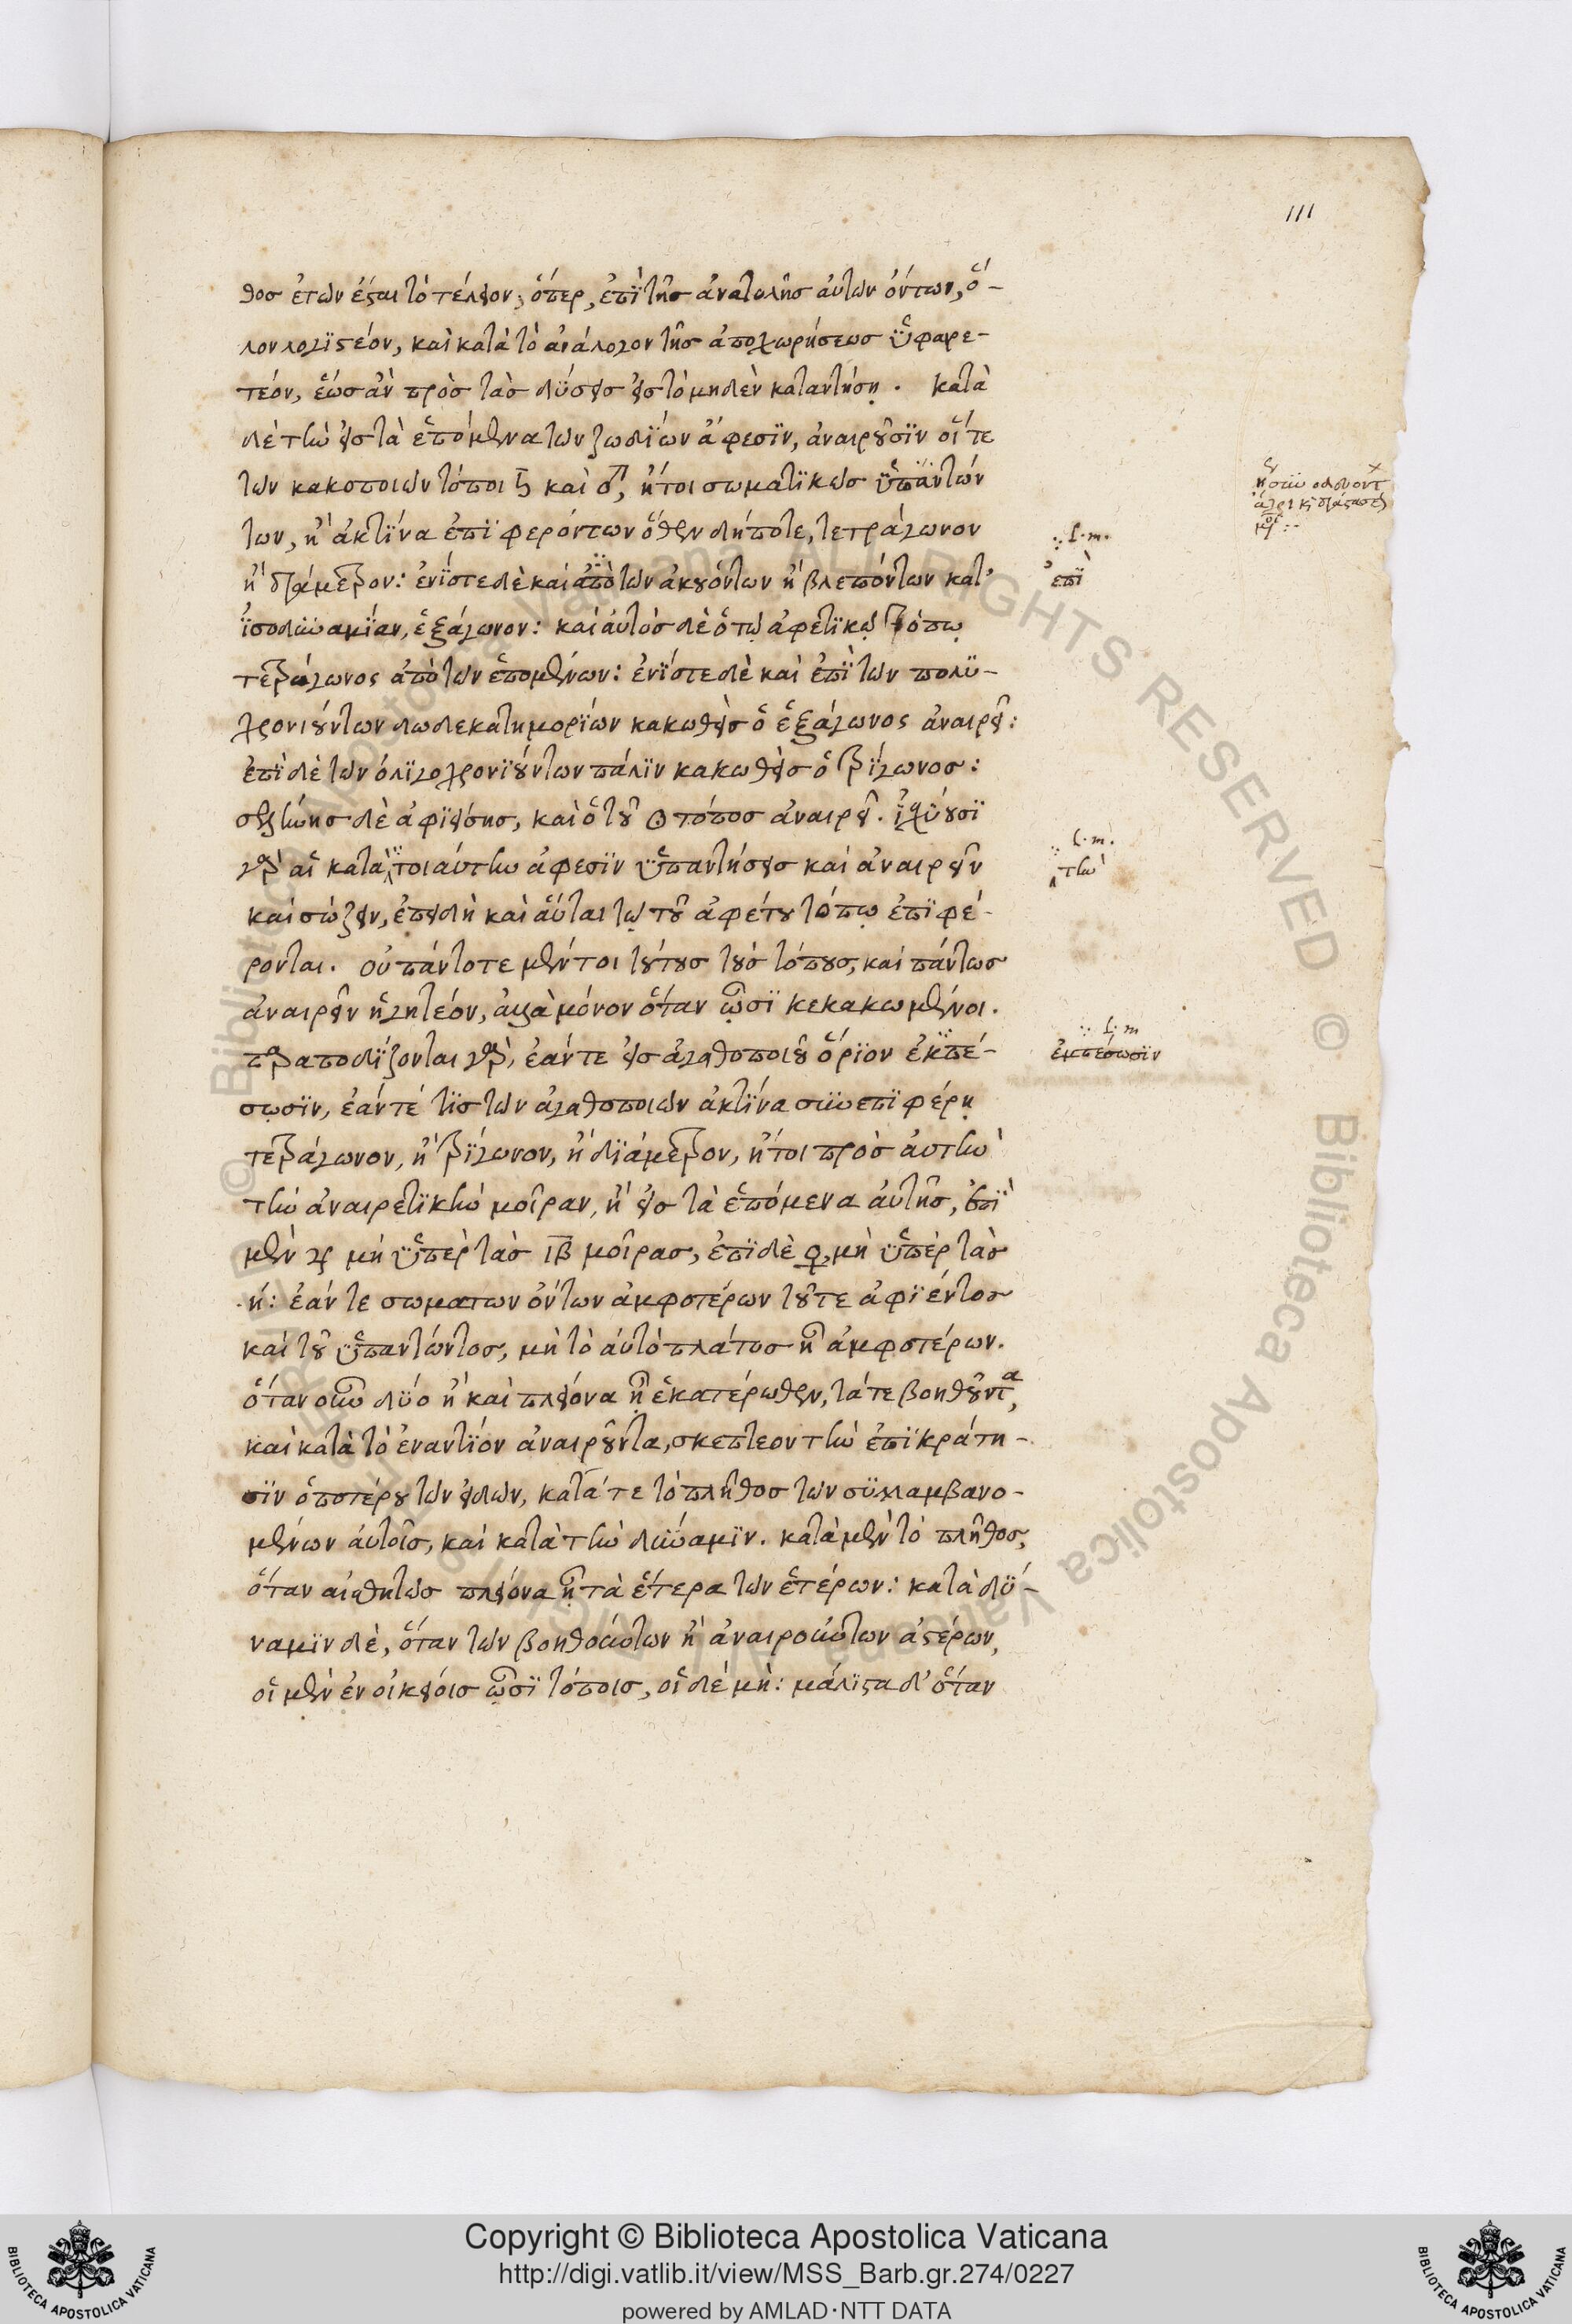 111
θος ἐτῶν ἔσται τὸ τέλειον, ὅπερ, ἐπὶ τῆς ἀνατολῆς αὐτῶν ὄντων, ὅ-
λον λογιστέον, καὶ κατὰ τὸ ἀνάλογον τῆς ἀποχωρήσεως ὑφαρε-
τέον, ἕως ἂν πρὸς τὰς δύσεις εἰς τὸ μηδὲν καταντήσῃ. κατὰ
δὲ τὴν εἰς τὰ ἑπόμενα τῶν ζωδίων ἄφεσιν, ἀναιροῦσιν οἵ τε
τῶν κακοποιῶν τόποι ♄ καὶ ♂, ἤτοι σωματικῶς ὑπαντών
των, ἢ ἀκτῖνα ἐπιφερόντων ὅθεν δήποτε, τετράγωνον
ἢ διάμετρον: ἐνίοτε δὲ καὶ ἀπὸ τῶν ἀκουόντων ἢ βλεπόντων κατ'
ἰσοδυναμίαν, ἑξάγωνον: καὶ αὐτὸς δὲ ὁ τῷ ἀφετικῷ τόπῳ
τετράγωνος ἀπὸ τῶν ἑπομένων: ἐνίοτε δὲ καὶ ἐπὶ τῶν πολυ-
χρονιούντων δωδεκατημορίων κακωθεὶς ὁ ἑξάγωνος ἀναιρεῖ:
ἐπὶ δὲ τῶν ὀλιγοχρονιούντων πάλιν κακωθεὶς ὁ τρίγωνος:
σελήνης δὲ ἀφιείσης, καὶ ὁ τοῦ ☉ τόπος ἀναιρεῖ. ἰσχύουσι
γὰρ αἱ κατὰ τοιαύτην ἄφεσιν ὑπαντήσεις καὶ ἀναιρεῖν
καὶ σώζειν, ἐπειδὴ καὶ αὗται τῷ τοῦ ἀφέτου τόπῳ ἐπιφέ-
ρονται. οὐ πάντοτε μέντοι τούτους τοὺς τόπους, καὶ πάντως
ἀναιρεῖν ἡγητέον, ἀλλὰ μόνον ὅταν ὦσι κεκακωμένοι.
παραποδίζονται γὰρ, ἐάν τε εἰς ἀγαθοποιοῦ ὅριον ἐκπέ-
σωσιν, ἐάν τέ τις τῶν ἀγαθοποιῶν ἀκτῖνα συνεπιφέρῃ
τετράγωνον, ἢ τρίγωνον, ἢ διάμετρον, ἤτοι πρὸς αὐτὴν
τὴν ἀναιρετικὴν μοῖραν, ἢ εἰς τὰ ἑπόμενα αὐτῆς, ἐπὶ
μὲν ♃ μὴ ὑπὲρ τὰς ιβ μοίρας, ἐπὶ δὲ ♀, μὴ ὑπὲρ τὰς
ή: ἐάν τε σωμάτων ὄντων ἀμφοτέρων τοῦ τε ἀφιέντος
καὶ τοῦ ὑπαντῶντος, μὴ τὸ αὐτὸ πλάτος ᾖ ἀμφοτέρων.
ὅταν οὖν δύο ἢ καὶ πλείονα ᾖ ἑκατέρωθεν, τά τε βοηθοῦντα,
καὶ κατὰ τὸ ἐναντίον ἀναιροῦντα, σκεπτέον τὴν ἐπικράτη-
σιν ὁποτέρου τῶν εἰδῶν, κατά τε τὸ πλῆθος τῶν συλλαμβανο-
μένων αὐτοῖς, καὶ κατὰ τὴν δύναμιν. κατὰ μὲν τὸ πλῆθος,
ὅταν αἰσθητῶς πλείονα ᾖ τὰ ἕτερα τῶν ἑτέρων: κατὰ δύ-
ναμιν δὲ, ὅταν τῶν βοηθούντων ἢ ἀναιρούντων ἀστέρων,
οἱ μὲν ἐν οἰκείοις ὦσι τόποις, οἱ δὲ μὴ: μάλιστα δ' ὅταν
∵ l. m.
ἐπὶ
∵ l. m.
τὴν
∵ l. m
ἐμπέσωσιν
Copyright © Biblioteca Apostolica Vaticana
http://digi.vatlib.it/view/MSS_Barb.gr.274/0227
powered by AMLAD·NTT DATA
BIBLIOTECA APOSTOLICA VATICANA
BIBLIOTECA APOSTOLICA VATICANA